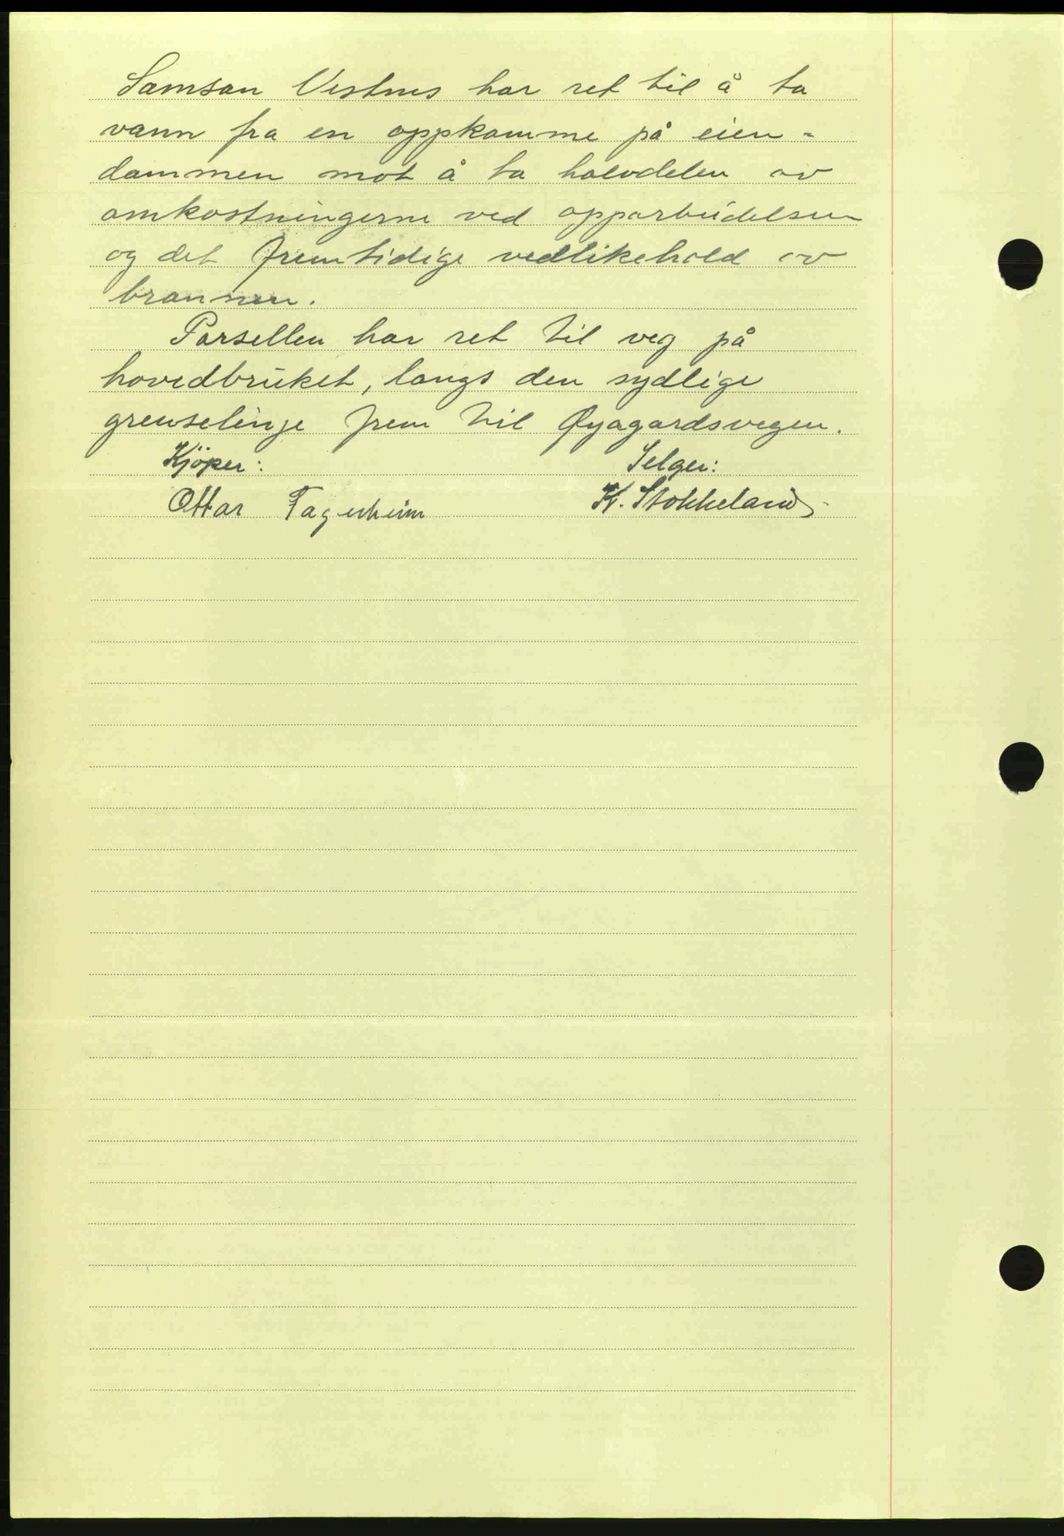 Samson Vestnes har ret til å ta
vann fra en oppkomme på eien-
dommen mot å ta halvdelen av
omkostningerne ved opparbeidelsen
og det fremtidige vedlikehold av
brønnen.
Parsellen har ret til veg på
hovedbruket, langs den sydlige
grenselinje frem til Øyagardsvegen.
Kjöper: Selger:
Ottar Fagerheim K. Stokkeland